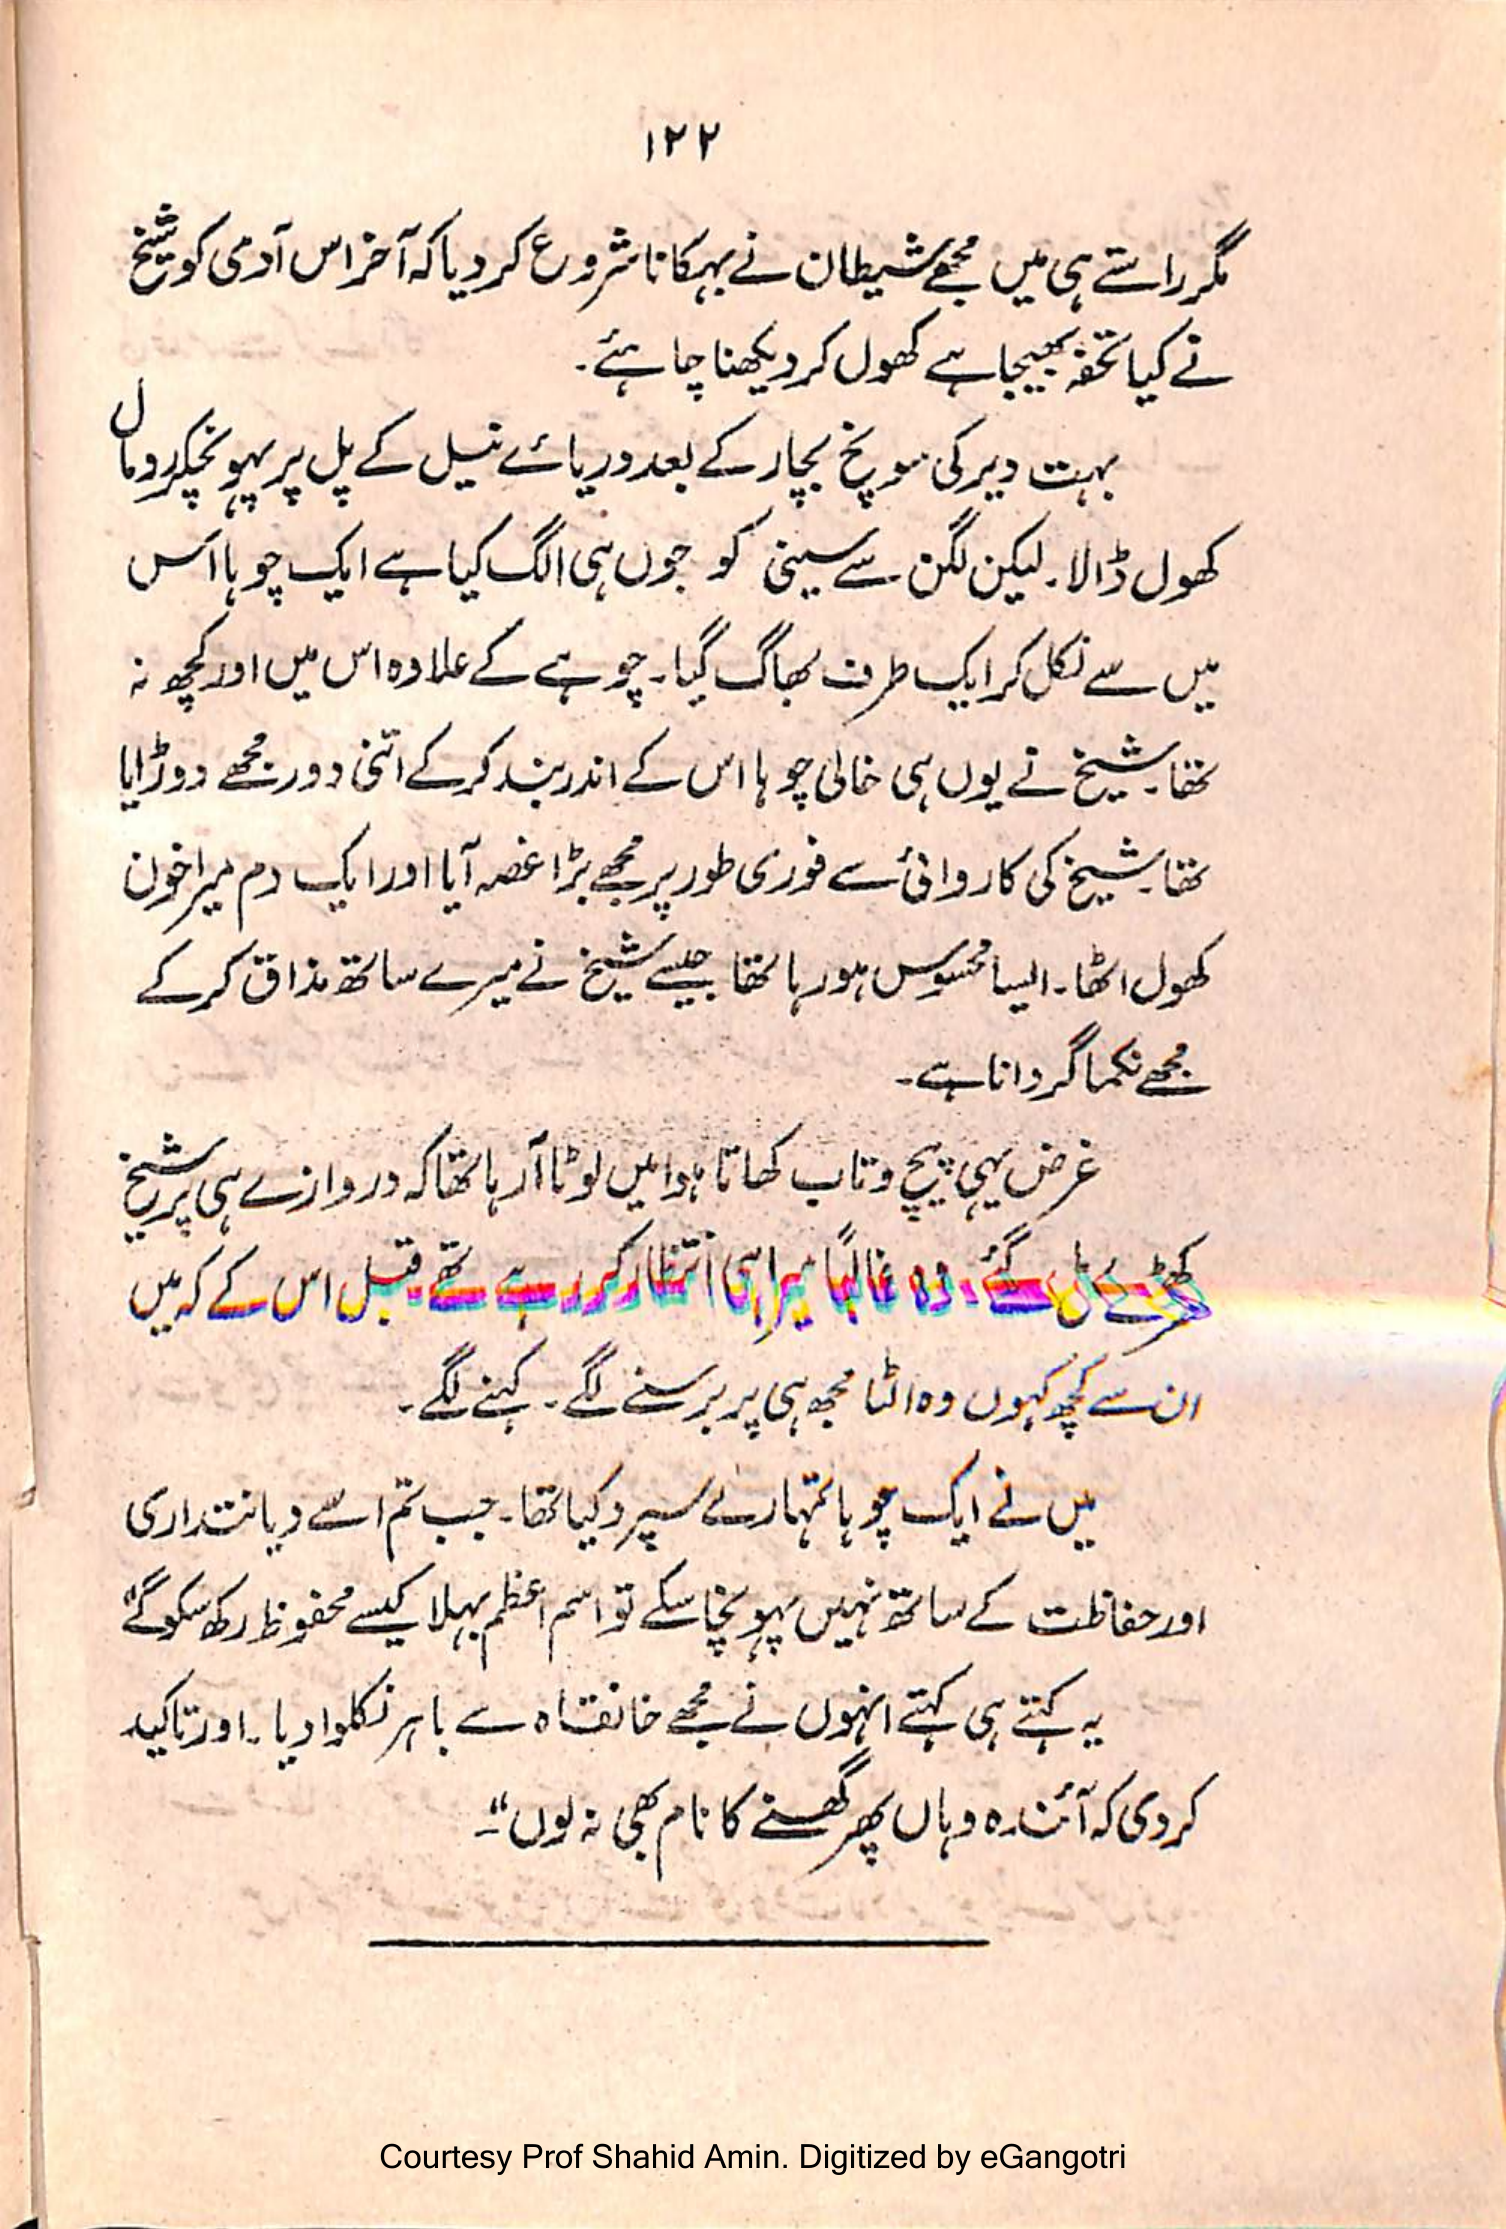 ۱۲۲
مگر راستے ہی میں مجھے شیطان نے بہکانا شروع کر دیا کہ آخر اس آدمی کو شیخ
نے کیا تحفہ بھیجا ہے کھول کر دیکھنا چاہئے۔
بہت دیر کی سوچ بچار کے بعد دریائے نیل کے پل پر پہونچکر رومال
کھول ڈالا۔ لیکن لگن سے سینی کو جوں ہی الگ کیا ہے ایک چوہا اس
میں سے نکل کر ایک طرف بھاگ گیا۔ چوہے کے علاوہ اس میں اور کچھ نہ
تھا۔ شیخ نے یوں ہی خالی چوہا اس کے اندر بند کر کے اتنی دور مجھے دوڑایا
تھا۔ شیخ کی کاروائی سے فوری طور پر مجھے بڑا غصہ آیا اور ایک دم میرا خون
کھول اٹھا۔ ایسا محسوس ہو رہا تھا جیسے شیخ نے میرے ساتھ مذاق کر کے
مجھے نکما گردانا ہے۔
غرض یہی پیچ و تاب کھاتا ہوا میں لوٹا آ رہا تھا کہ دروازے ہی پر شیخ
کھڑے مل گئے۔ وہ غالباً میرا ہی انتظار کر رہے تھے قبل اس کے کہ میں
ان سے کچھ کہوں وہ الٹا مجھ ہی پر برسنے لگے۔ کہنے لگے۔
میں نے ایک چوہا تمہارے سپرد کیا تھا۔ جب تم اسے دیانتداری
اور حفاظت کے ساتھ نہیں پہونچا سکے تو اسم اعظم بہلا کیسے محفوظ رکھ سکو گے"
یہ کہتے ہی کہتے انہوں نے مجھے خانقاہ سے باہر نکلوا دیا۔ اور تاکید
کر دی کہ آئندہ وہاں پھر گھسنے کا نام بھی نہ لوں"۔
Courtesy Prof Shahid Amin. Digitized by eGangotri